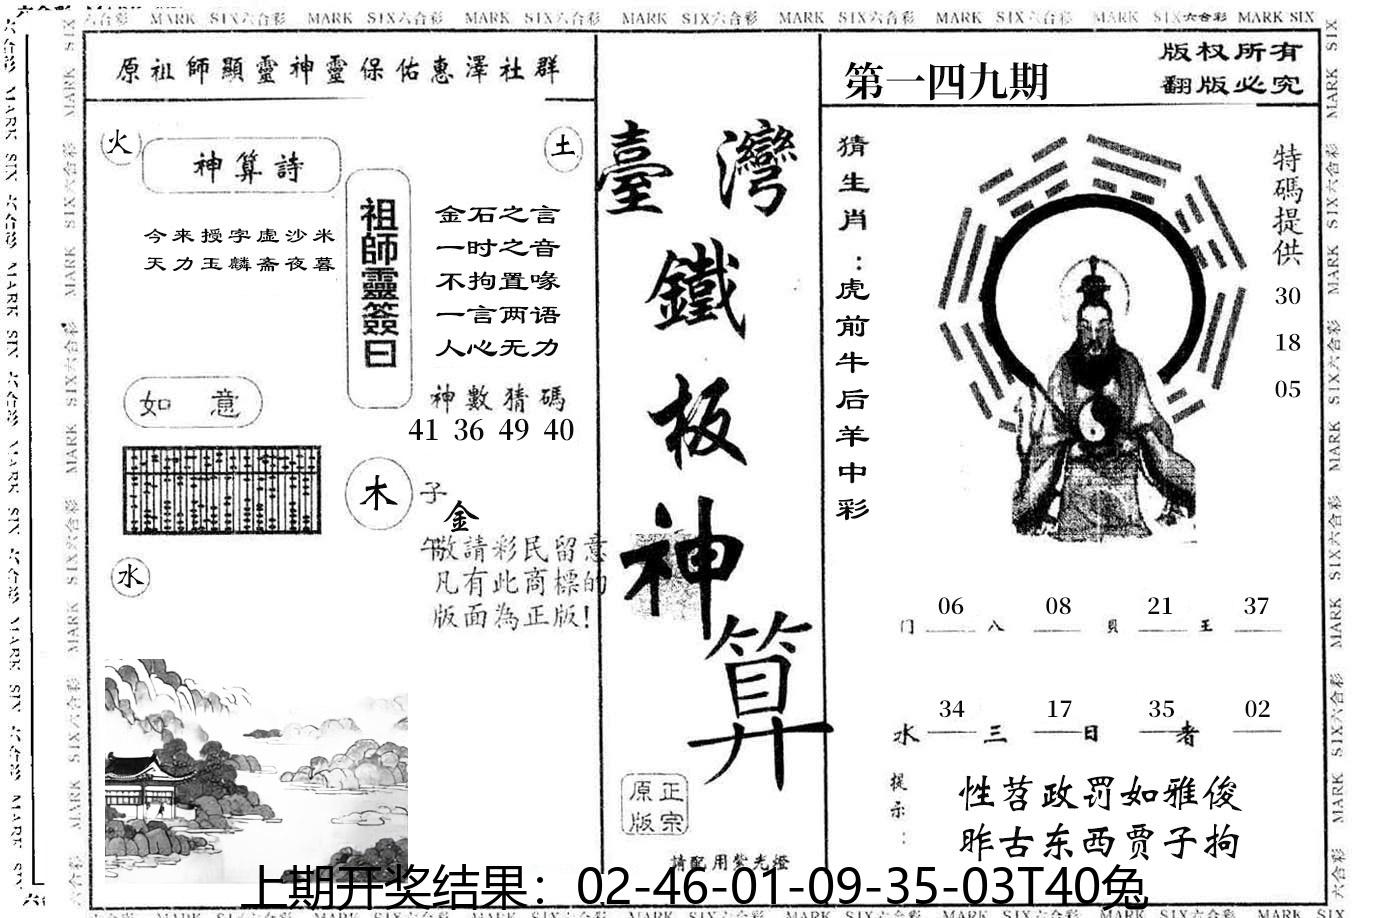 MARK SIX六合彩 MARK SIX六合彩 MARK SIX六合彩 MARK SIX六合彩 MARK SIX六合彩 MARK SIX六合彩 MARK SIX六合彩 MARK SIX
原祖師顯靈神靈保佑惠澤社群
火
神算詩
土
今来授字虚沙米
天力玉麟斋夜暮
祖師靈簽曰
金石之言
一时之音
不拘置喙
一言两语
人心无力
如意
神數猜碼
41 36 49 40
木
子
金
午
水
敬請彩民留意
凡有此商標的
版面為正版!
臺灣
鐵
板
神
算
正宗
原版
請配用紫光燈
第一四九期
版权所有
翻版必究
猜生肖:虎前牛后羊中彩
特碼提供
30
18
05
06 08 21 37
门 八 貝 王
34 17 35 02
水 三 日 者
提示:
性苕政罚如雅俊
昨古东西贾子拘
上期开奖结果：02-46-01-09-35-03T40兔